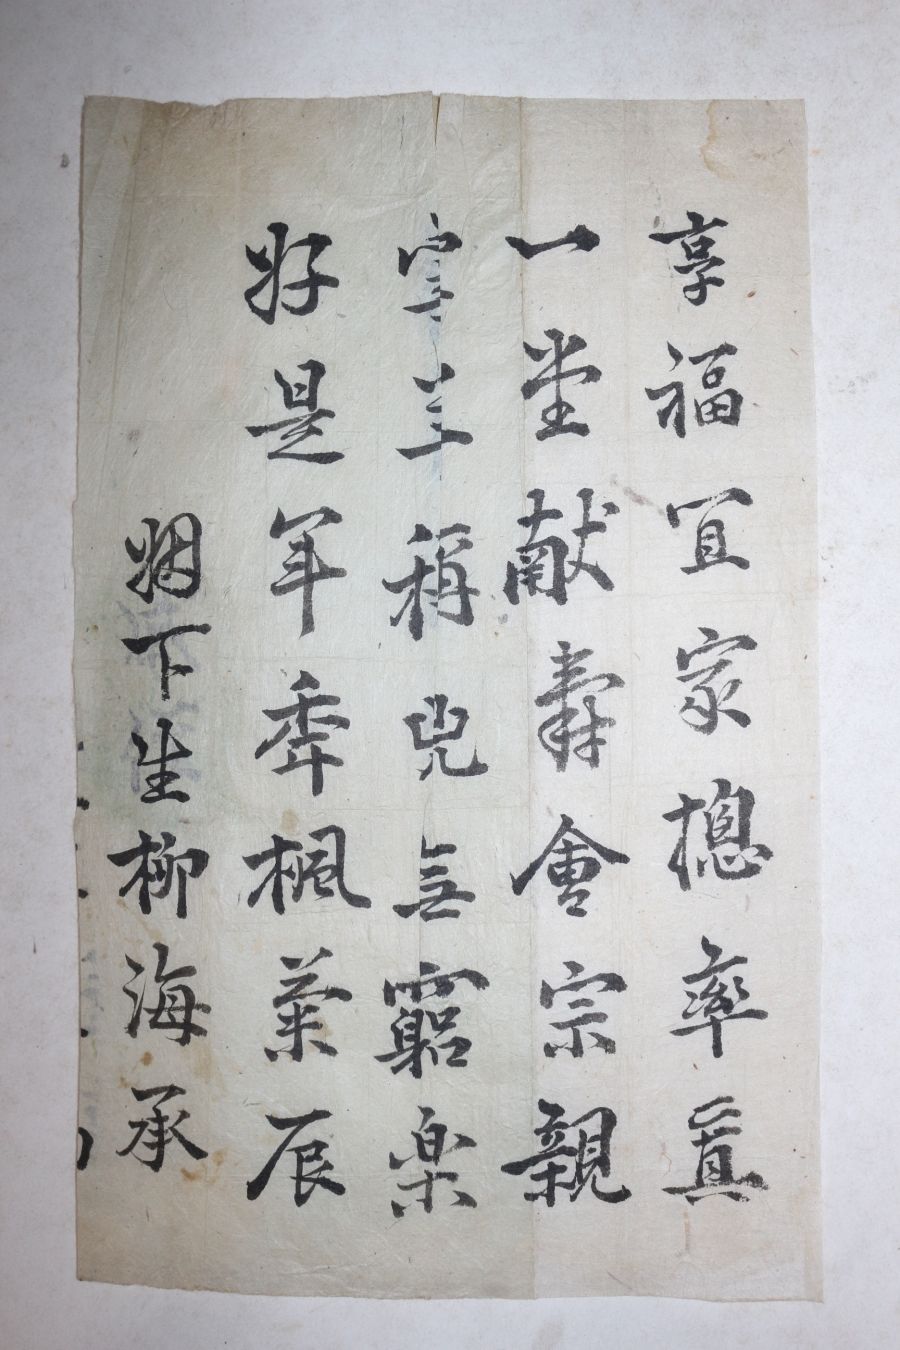 享福冝家摠率眞
一堂献壽會宗親
宰羊稱兕無窮楽
好是年秊楓菊辰
姻下生柳海承